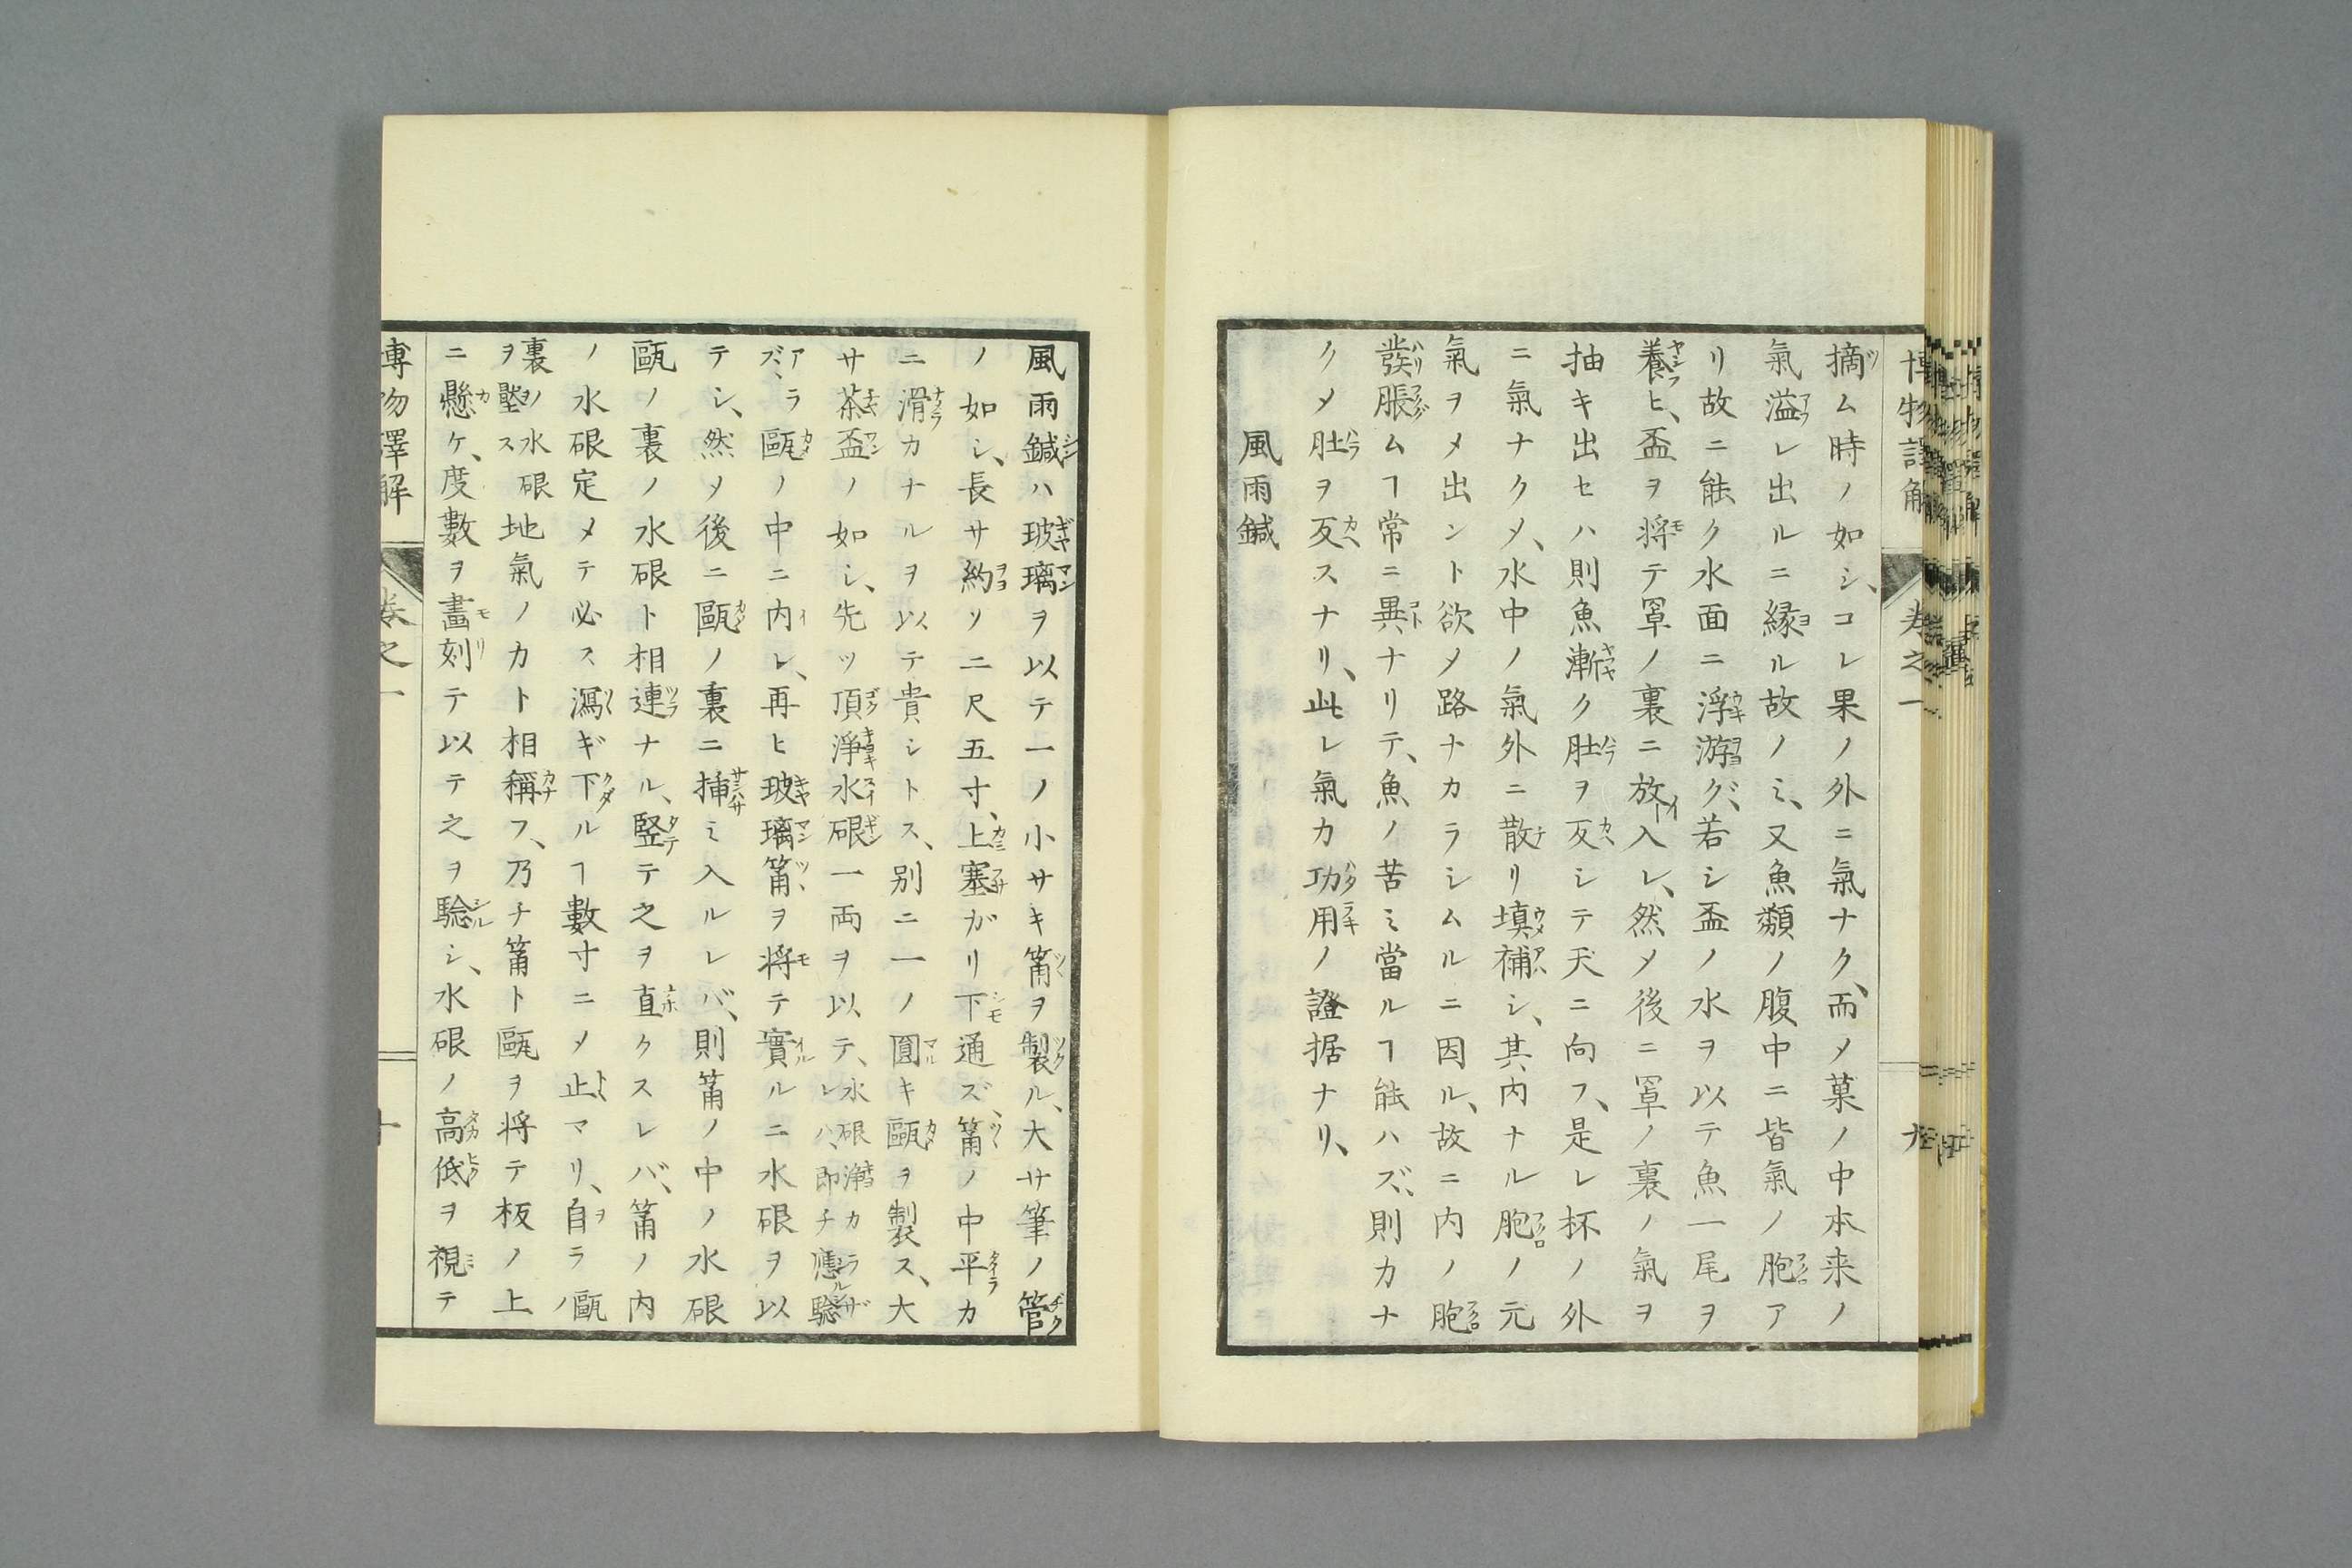 摘ム時ノ如シ、コレ果ノ外ニ氣ナク、而メ菓ノ中本来ノ
氣溢レ出ルニ縁ル故ノミ、又魚類ノ腹中ニ皆氣ノ胞ア
リ故ニ能ク水面ニ浮游グ、若シ盃ノ水ヲ以テ魚一尾ヲ
養ヒ、盃ヲ将テ罩ノ裏ニ放入レ、然メ後ニ罩ノ裏ノ氣ヲ
抽キ出セハ則魚漸ク肚ヲ反シテ天ニ向フ、是レ杯ノ外
ニ氣ナクメ、水中ノ氣外ニ散リ填補シ、其内ナル胞ノ元
氣ヲメ出ント欲メ路ナカラシムルニ因ル、故ニ内ノ胞
發脹ムヿ常ニ異ナリテ、魚ノ苦ミ當ルヿ能ハズ、則カナ
クメ肚ヲ反スナリ、此レ氣カ功用ノ證据ナリ、
風雨鍼
風雨鍼ハ玻璃ヲ以テ一ノ小サキ筩ヲ製ル、大サ筆ノ管
ノ如シ、長サ約ソ二尺五寸、上塞ガリ下通ズ、筩ノ中平カ
ニ滑カナルヲ以テ貴シトス、別ニ一ノ圓キ甌ヲ製ス、大
サ茶盃ノ如シ、先ツ頂淨水硍一両ヲ以テ、水硍瀞カラザレハ、即チ應驗アラズ、
甌ノ中ニ内レ、再ヒ玻璃筩ヲ将テ實ルニ水硍ヲ以
テシ、然メ後ニ甌ノ裏ニ挿ミ入ルレバ、則筩ノ中ノ水硍
甌ノ裏ノ水硍ト相連ナル、竪テ之ヲ直クスレバ、筩ノ内
ノ水硍定メテ必ス瀉ギ下ルヿ數寸ニメ止マリ、自ラ甌ノ
裏ノ水硍ヲ壓ス地氣ノカト相稱フ、乃チ筩ト甌ヲ将テ板ノ上
ニ懸ケ、度數ヲ畫刻テ以テ之ヲ驗シ、水硍ノ高低ヲ視テ
博物譯解 卷之一 十